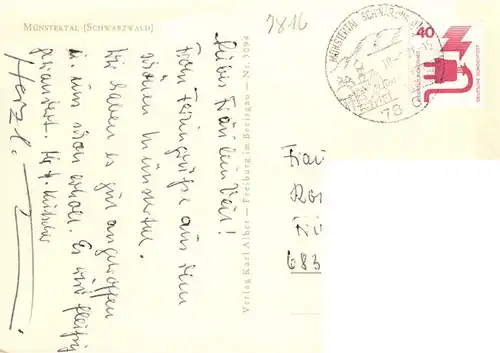 MÜNSTERTAL (SCHWARZWALD)
7816
MÜNSTERTAL SCHWARZWALD
40
DEUTSCHE BUNDESPOST
78
Liebes Fräulein
Feriengrüße aus dem
schönen Münstertal.
Wir haben es gut angetroffen
u. uns schon erholt. Es wird fleißig
gewandert.
Herzl.
Verlag Karl Alber — Freiburg im Breisgau — Nr. 3094
Frau
683